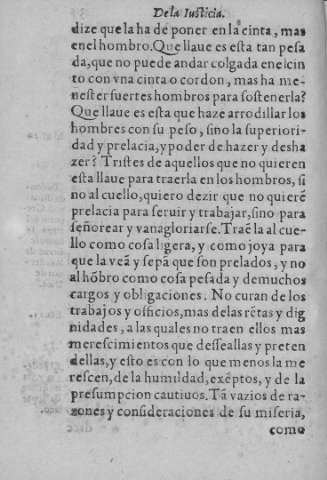 De la Iusticia.
dize que la ha de poner en la cinta, mas
en el hombro. Que llaue es esta tan pesa
da, que no puede andar colgada en el cin
to con vna cinta o cordon, mas ha me-
nester fuertes hombros para sostenerla?
Que llaue es esta que haze arrodillar los
hombres con su peso, sino la superiori-
dad y prelacia, y poder de hazer y desha
zer? Tristes de aquellos que no quieren
esta llaue para traerla en los hombros, si
no al cuello, quiero dezir que no quierẽ
prelacia para seruir y trabajar, sino para
señorear y vanagloriarse. Traẽla al cue-
llo como cosa ligera, y como joya para
que la veã y sepã que son prelados, y no
al hõbro como cosa pesada y de muchos
cargos y obligaciones. No curan de los
trabajos y officios, mas de las rẽtas y dig
nidades, a las quales no traen ellos mas
merescimientos que dessearllas y preten
dellas, y esto es con lo que menos la me
rescen, de la humildad, exẽptos, y de la
presumpcion cautiuos. Tã vazios de ra-
zones y consideraciones de su miseria,
como